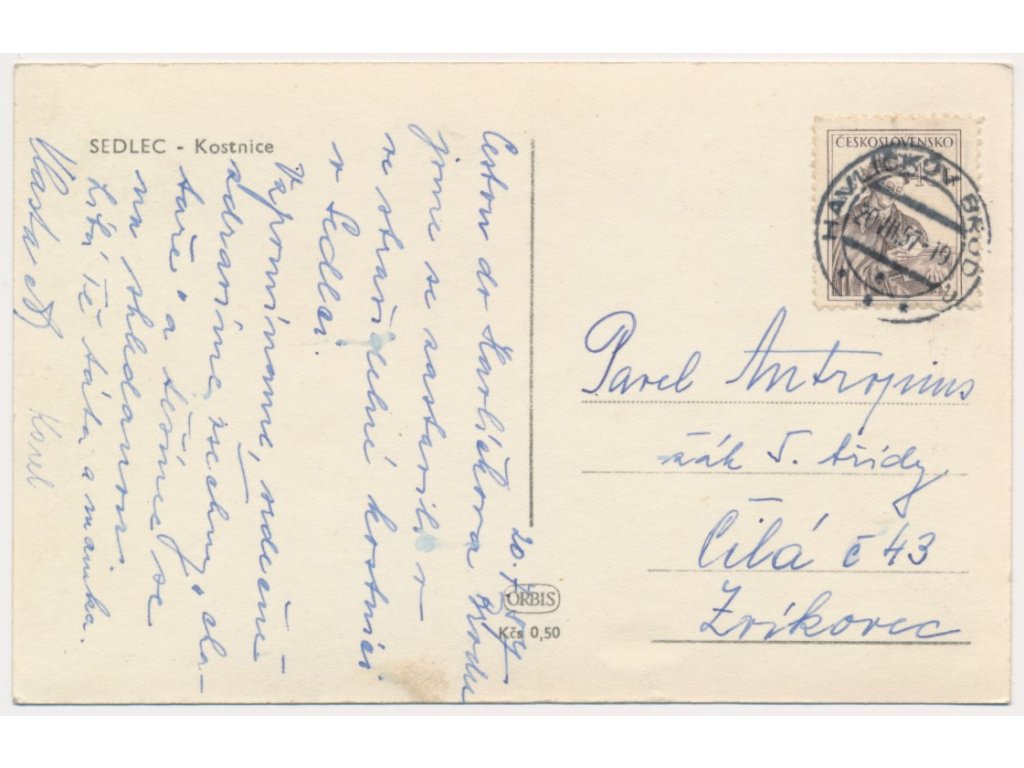 SEDLEC - Kostnice
20.
Cestou do Havlíčkova Brodu
jsme se zastavili v
se strašidelné kostnici
v Sedlci.
Vzpomínáme, srdečně
zdravíme všechny, cla-
taře a těšíme se
na shledanou
Líbá Tě táta a maminka.
Vlasta
Karel
ORBIS
Kčs 0,50
ČESKOSLOVENSKO
HAVLÍČKŮV BROD
20.VII.57-19
Pavel Antropius
žák 5. třídy
Čilá č 43
Zvíkovec